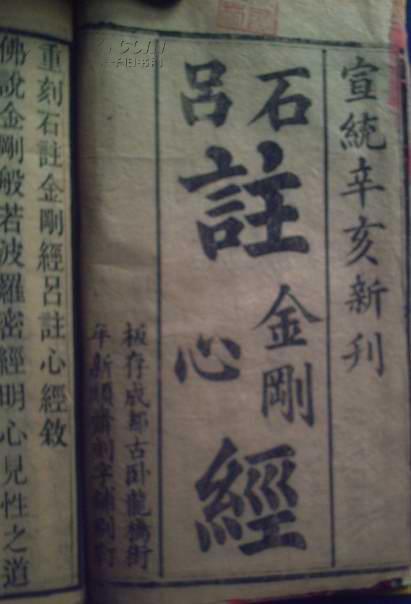 宣統辛亥新刊
石呂
註
金剛
心
經
板存成都古臥龍橋街
重刻石註金剛經呂註心經敘
佛說金剛般若波羅密經明心見性之道